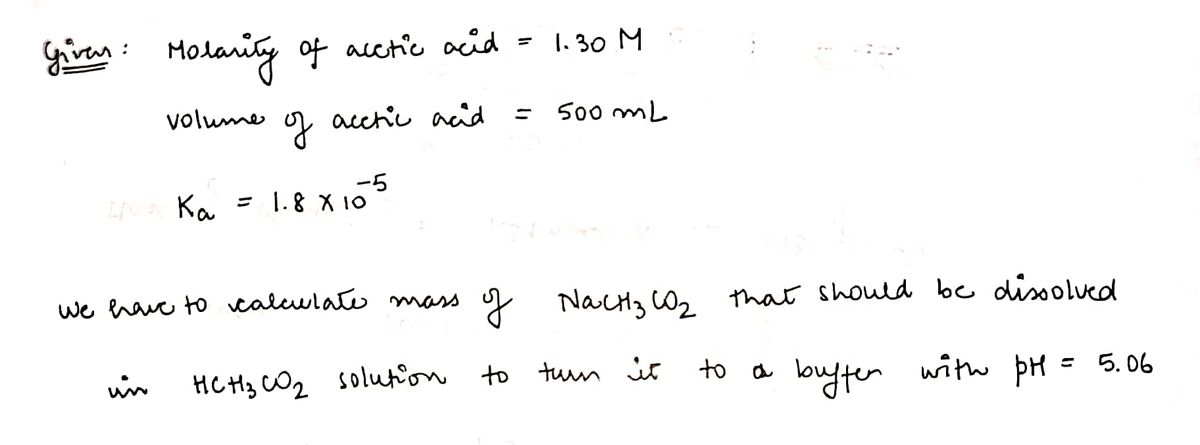 Given : Molarity of acetic acid = 1.30 M
volume of acetic acid = 500 mL
Ka = 1.8 X 10⁻⁵
we have to calculate mass of NaCH₃CO₂ that should be dissolved
in HCH₃CO₂ solution to turn it to a buffer with pH = 5.06